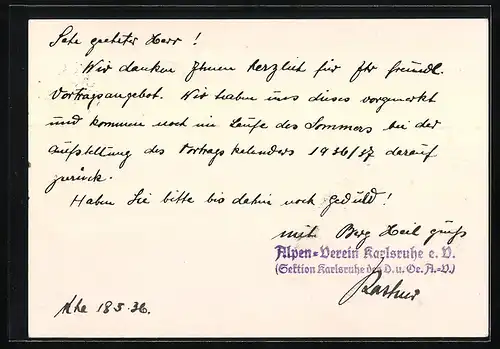 Sehr geehrter Herr!
Wir danken Ihnen herzlich für Ihr freundl.
Vortragsangebot. Wir haben uns dieses vorgemerkt
und kommen noch im Laufe des Sommers bei der
Aufstellung des Vortragskalenders 1936/37 darauf
zurück.
Haben Sie bitte bis dahin noch geduld!
mit Berg Heil gruß
Alpen-Verein Karlsruhe e. V.
(Sektion Karlsruhe des D. u. Oe. A.-V.)
Khe 18 5. 36.